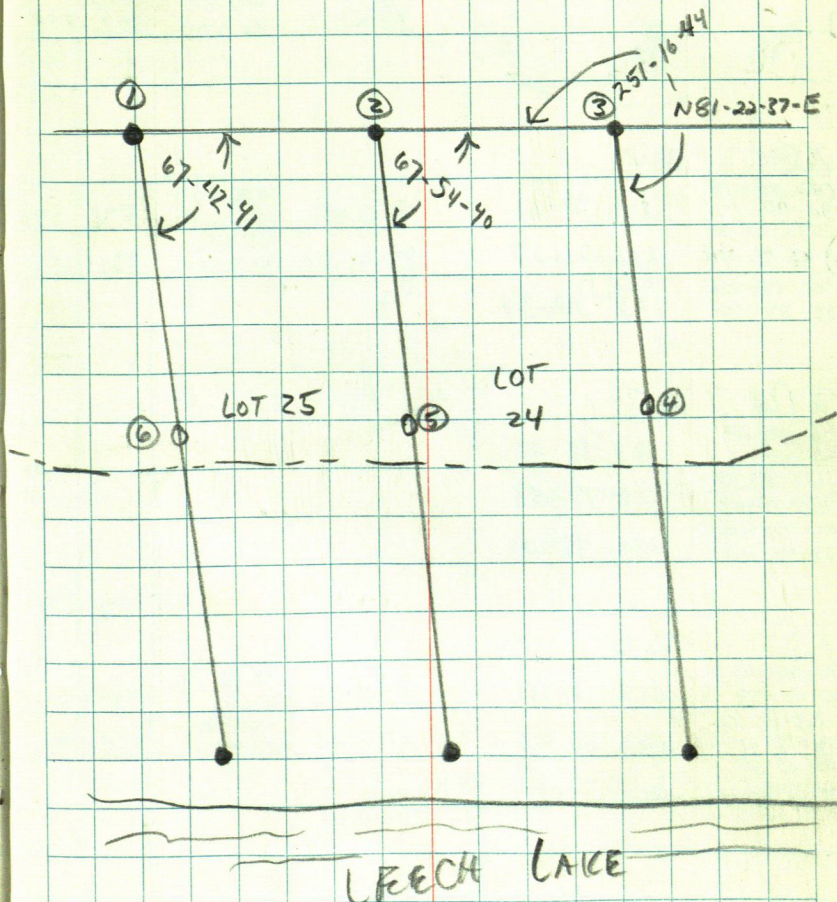 251-16-44
① ② ③ N81-22-37-E
67-42-41 67-54-40
LOT 25 LOT 24
⑥ ⑤ ④
LEECH LAKE